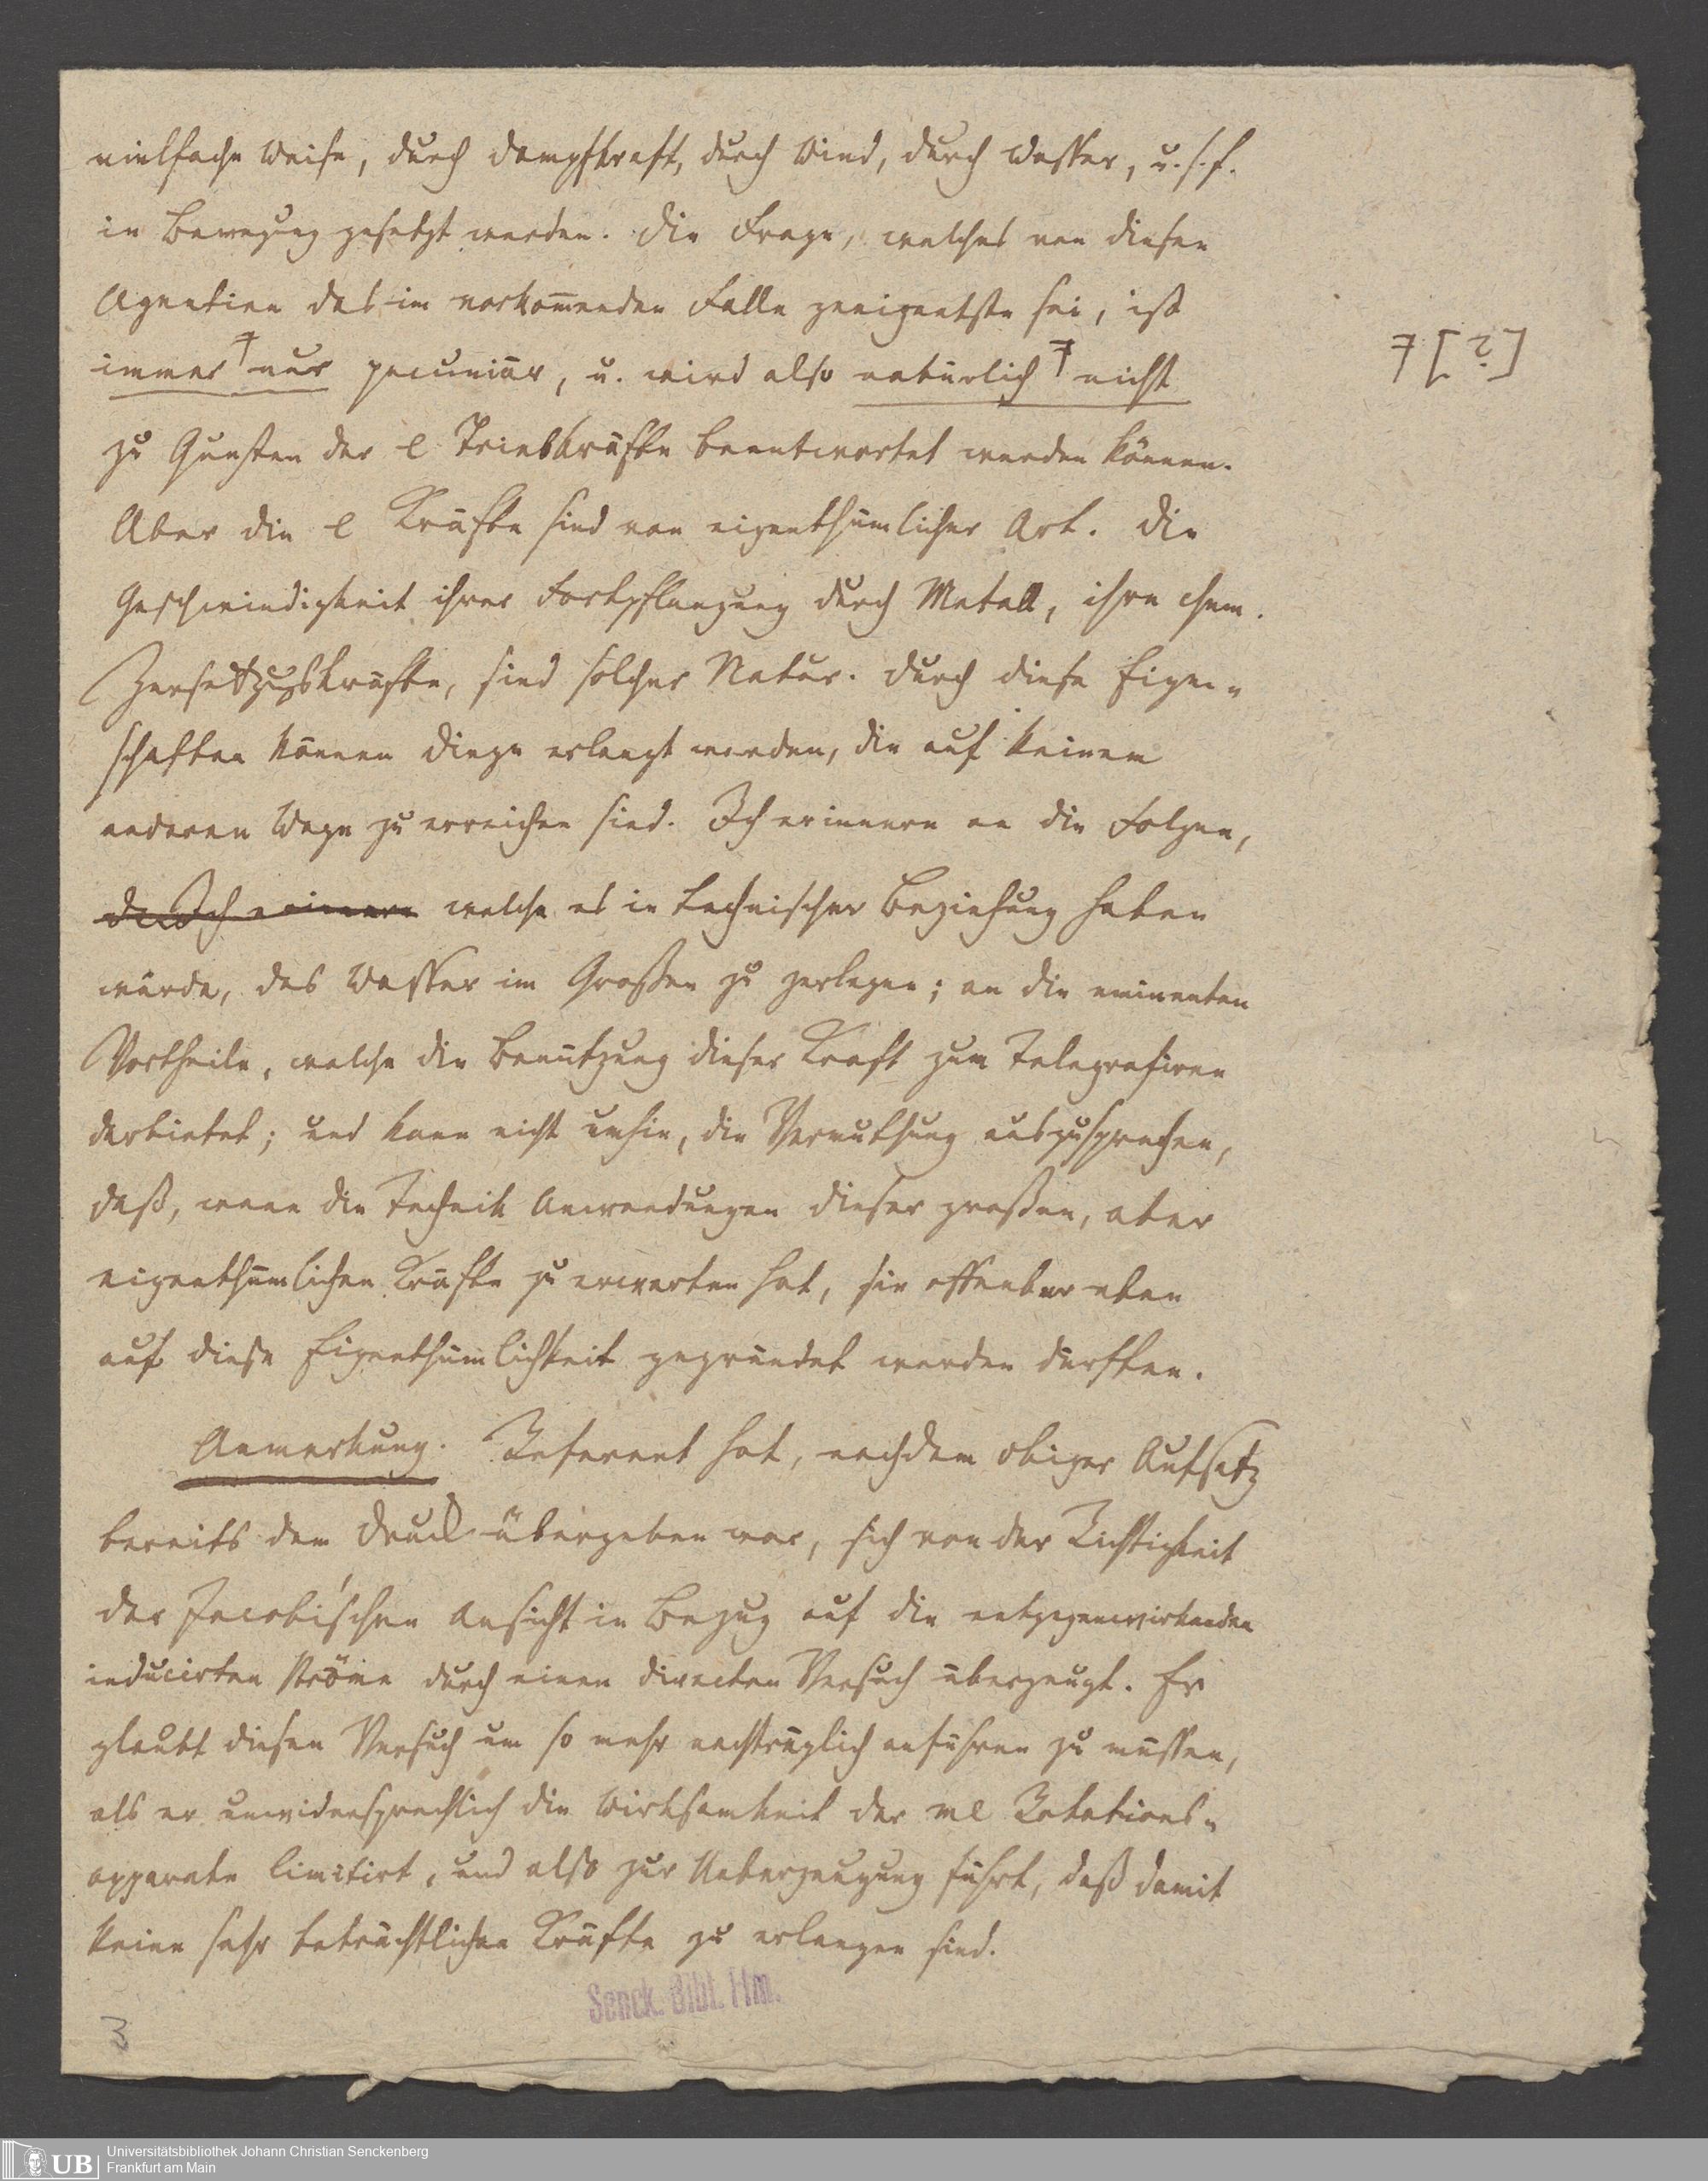 vielfache Weise, durch Dampfkraft, durch Wind, durch Wasser, u. s. f.
in Bewegung gesetzt werden. Die Frage, welches von diesen
Agentien das im vorkom̄enden Falle geeigentste sei, ist
immer ⸸ nur pecuniär, u. wird also natürlich ⸸ nicht
⸸ [?]
zu Gunsten der e Triebkräfte beantwortet werden können.
Aber die e Kräfte sind von eigenthümlicher Art. Die
Geschwindigkeit ihrer Fortpflanzung durch Metall, ihre chem.
Zersetzungskräfte, sind solcher Natur. Durch diese Eigen-
schaften können Dinge erlangt werden, die auf keinem
anderen Wege zu erreichen sind. Ich erinnere an die Folgen,
Ich erinnere welche es in technischer Beziehung haben
würde, das Wasser im Großen zu zerlegen; an die eminenten
Vortheile, welche die Benützung dieser Kraft zum Telegrafiren
darbietet; und kann nicht umhin, die Vermuthung auszusprechen,
daß, wenn die Technik Anwendungen dieser großen, aber
eigenthümlichen Kräfte zu erwarten hat, sie offenbar eben
auf diese Eigenthümlichkeit gegründet werden dürften.
Anmerkung. Referent hat, nachdem obiger Aufsatz
bereits dem Druck übergeben war, sich von der Richtigkeit
der Jacobi'schen Ansicht in Bezug auf die entgegenwirkenden
inducirten Ströme durch einen directen Versuch überzeugt. Er
glaubt diesen Versuch um so mehr nachträglich anführen zu müssen,
als er unwidersprechlich die Wirksamkeit der me Rotations-
apparate limitirt, und also zur Ueberzeugung führt, daß damit
keine sehr beträchtlichen Kräfte zu erlangen sind.
Senck. Bibl. Ffm.
3
UB
Universitätsbibliothek Johann Christian Senckenberg
Frankfurt am Main